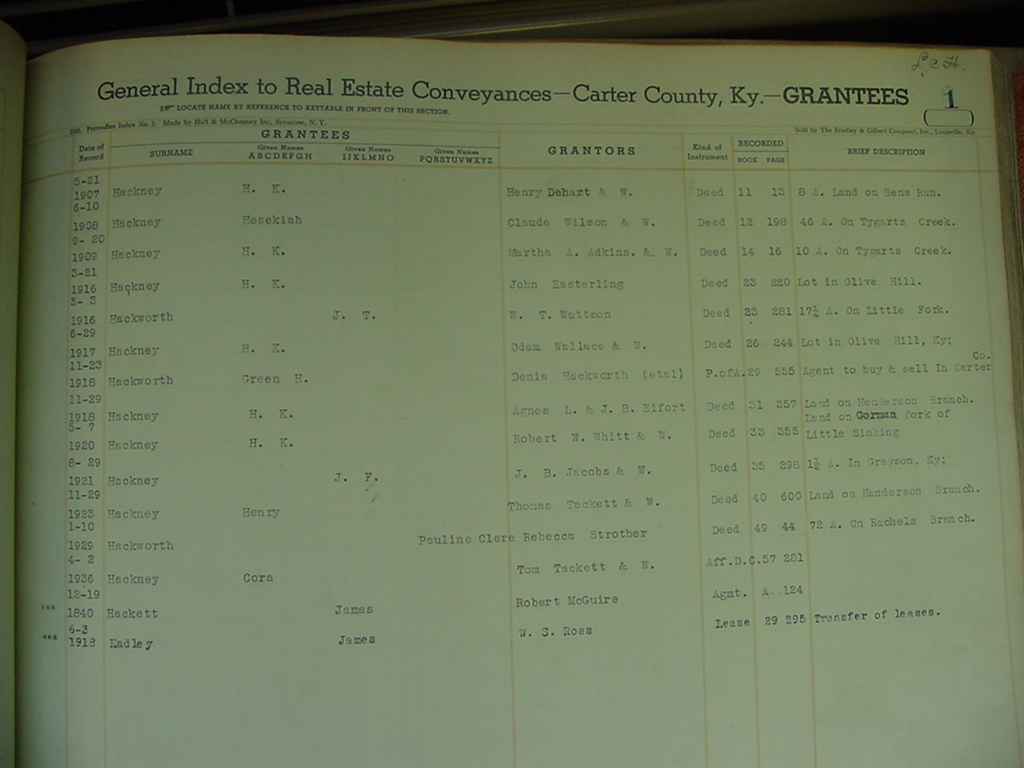 L. C. H.
General Index to Real Estate Conveyances—Carter County, Ky.—GRANTEES 1
LOCATE NAME BY REFERENCE TO KEYTABLE IN FRONT OF THIS SECTION.
Permaflex Index No. 1. Made by Hall & McChesney Inc, Syracuse, N. Y. Sold by The Bradley & Gilbert Company, Inc., Louisville, Ky.
GRANTEES
Date of Record SURNAME Given Names ABCDEFGH Given Names IJKLMNO Given Names PQRSTUVWXYZ GRANTORS Kind of Instrument RECORDED BOOK PAGE BRIEF DESCRIPTION
5-21
1907 Hackney H. K. Henry Dehart & W. Deed 11 13 8 A. Land on Bens Run.
6-10
1908 Hackney Hesekiah Claude Wilson & W. Deed 12 198 46 A. On Tygarts Creek.
9- 20
1909 Hackney H. K. Martha A. Adkins. & W. Deed 14 16 10 A. On Tygarts Creek.
3-21
1916 Hackney H. K. John Easterling Deed 23 220 Lot in Olive Hill.
5- 3
1916 Hackworth J. T. W. T. Wattson Deed 23 281 17½ A. On Little Fork.
6-29
1917 Hackney H. K. Odam Wallace & W. Deed 26 244 Lot in Olive Hill, Ky;
11-23 Co.
1918 Hackworth Green H. Denis Hackworth (etal) P.ofA. 29 555 Agent to buy & sell In Carter
11-29
1918 Hackney H. K. Agnes L. & J. B. Eifort Deed 31 357 Land on Henderson Branch.
5- 7 Land on Gorman fork of
1920 Hackney H. K. Robert W. Whitt & W. Deed 33 355 Little Sinking
8- 29
1921 Hackney J. F. J. B. Jacobs & W. Deed 35 298 1½ A. In Grayson, Ky;
11-29
1923 Hackney Henry Thomas Tackett & W. Deed 40 600 Land on Henderson Branch.
1-10
1929 Hackworth Pauline Clere Rebecca Strother Deed 49 44 72 A. On Rachels Branch.
4- 2
1936 Hackney Cora Tom Tackett & W. Aff.D.C. 57 281
12-19
*** 1840 Hackett James Robert McGuire Agmt. A. 124
6-3
*** 1918 Hadley James W. S. Ross Lease 29 295 Transfer of leases.